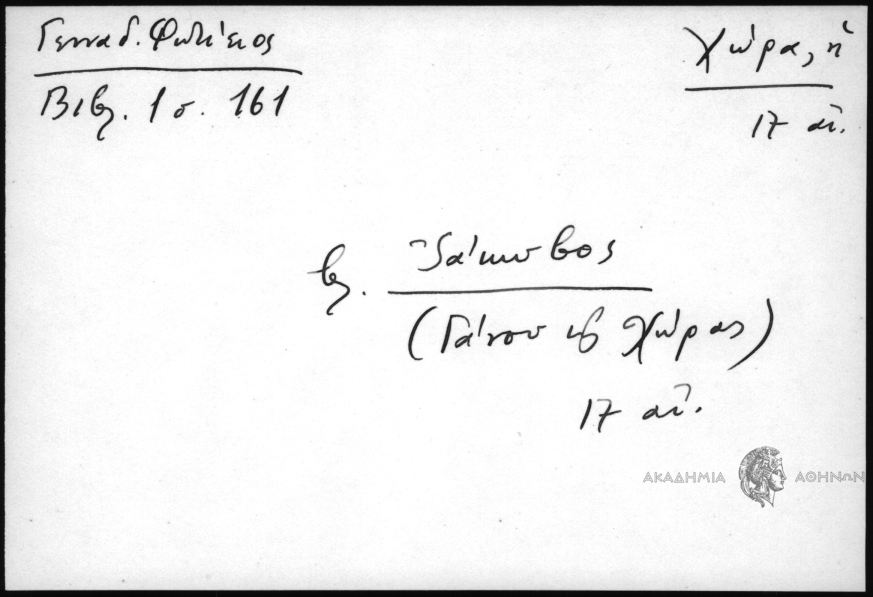 Γενναδ. Φωτίειος
Χώρα, ἡ
Βιβλ. 1 σ. 161
17 αἰ.
βλ. Ἰάκωβος
(Γάνου καὶ Χώρας)
17 αἰ.
ΑΚΑΔΗΜΙΑ ΑΘΗΝΩΝ